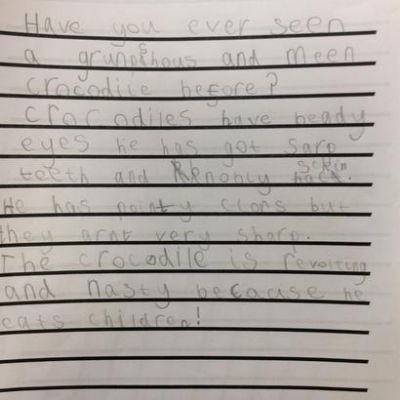 Have you ever seen
a grumpshous and meen
crocodile before?
Crocodiles have beady
eyes he has got sarp
teeth and skin
He has pointy clors but
they arnt very sharp.
The crocodile is revolting
and nasty because he
eats children!